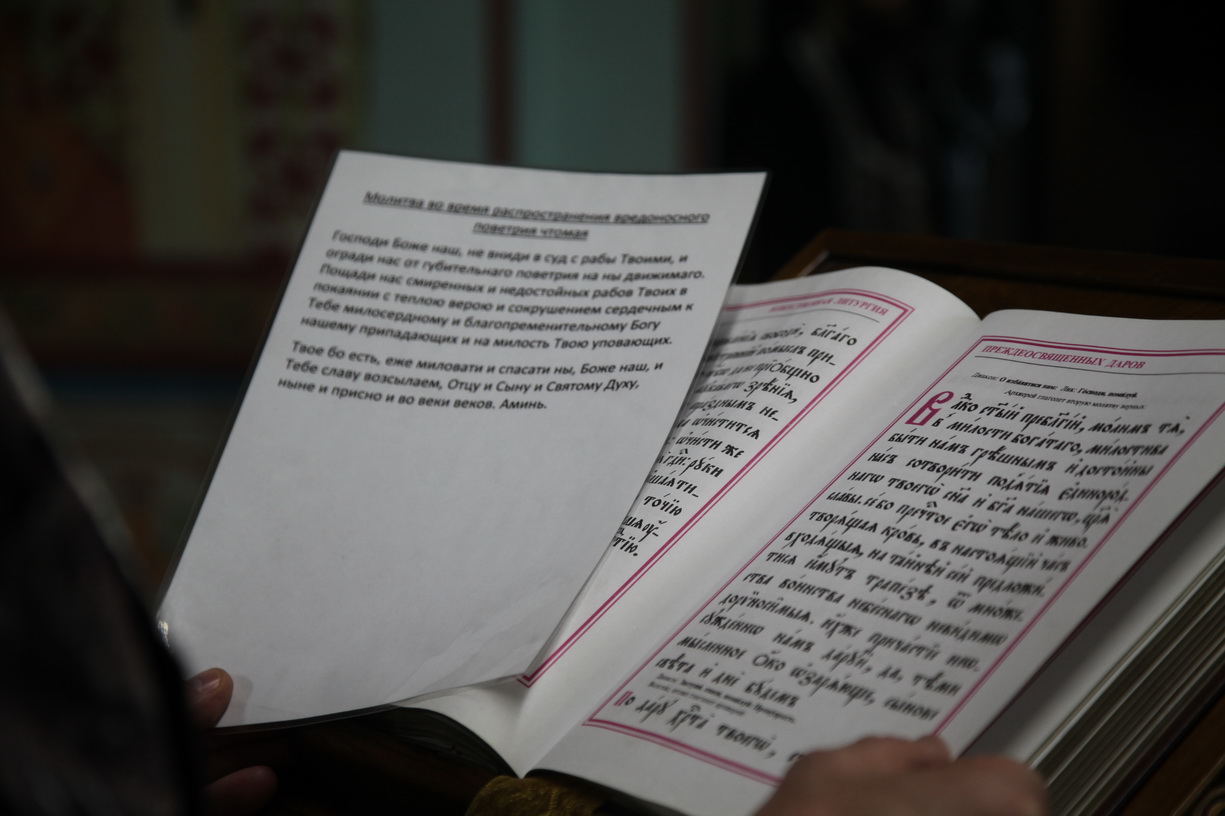 Молитва во время распространения вредоносного
поветрия чтомая
Господи Боже наш, не вниди в суд с рабы Твоими, и
огради нас от губительнаго поветрия на ны движимаго.
Пощади нас смиренных и недостойных рабов Твоих в
покаянии с теплою верою и сокрушением сердечным к
Тебе милосердному и благопременительному Богу
нашему припадающих и на милость Твою уповающих.
Твое бо есть, еже миловати и спасати ны, Боже наш, и
Тебе славу возсылаем, Отцу и Сыну и Святому Духу,
ныне и присно и во веки веков. Аминь.
ЛИТУРГИЯ
бл҃га́го
при-
прїѻбщно
зрѣ́нїѧ,
пра́зднымъ не-
ѡ҆чи́ститсѧ
ѡ҆чи́сти же
рꙋ́ки
то́чїю
ПРЕЖДЕОСВЯЩЕННЫХ ДАРОВ
Диакон: О избавитися нам: Лик: Господи, помилуй.
Архиерей глаголет вторую молитву верных:
Влⷣко ст҃ы́й пребл҃гі́й, мо́лимъ тѧ̀,
въ ми́лости бога́таго, ми́лостива
бы́ти на́мъ грѣ̑шнымъ, и҆ досто́йны
на́съ сотвори́ти под̾ѧ́тїѧ є҆диноро́д-
нагѡ твоегѡ̀ сн҃а и҆ бг҃а на́шегѡ, цр҃ѧ̀
сла́вы. се́ бо пречⷭ҇тое є҆гѡ̀ тѣ́ло и҆ живо-
творѧ́щаѧ кро́вь, въ настоѧ́щїй ча́съ
входѧ̑щаѧ, на та́йнѣй се́й предложи́-
тисѧ и҆́мꙋтъ трапе́зѣ, ѿ мно́же-
ства во́инства нбⷭ҇нагѡ неви́димѡ
дорѷноси̑маѧ. и҆́хже прича́стїе неѡ-
сꙋжде́нно на́мъ да́рꙋй, да, тѣ́ми
мы́сленное ѻ҆́ко ѡ҆зарѧ́юще, сы́нове
свѣ́та и҆ днѐ бꙋ́демъ
По да́рꙋ хрⷭ҇та̀ твоегѡ̀,